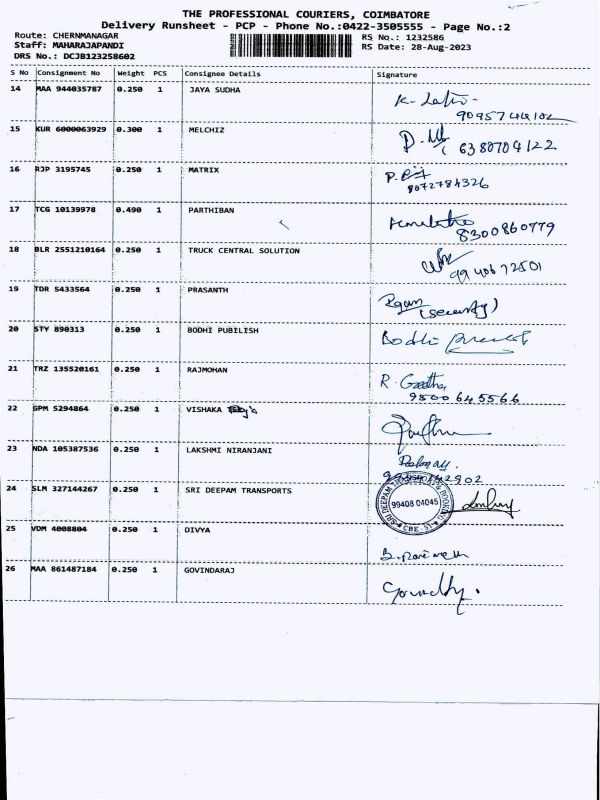 THE PROFESSIONAL COURIERS, COIMBATORE
Delivery Runsheet - PCP - Phone No.:0422-3505555 - Page No.:2
Route: CHERNMANAGAR
RS No.: 1232586
Staff: MAHARAJAPANDI
RS Date: 28-Aug-2023
DRS No.: DCJB123258602
S No Consignment No Weight PCS Consignee Details Signature
14 MAA 944035787 0.250 1 JAYA SUDHA
15 KUR 6000063929 0.300 1 MELCHIZ
6380704122
16 RJP 3195745 0.250 1 MATRIX
8072784326
17 TCG 10139978 0.490 1 PARTHIBAN
8300860779
18 BLR 2551210164 0.250 1 TRUCK CENTRAL SOLUTION
19 TDR 5433564 0.250 1 PRASANTH
(security)
20 STY 890313 0.250 1 BODHI PUBILISH
Bodhi
21 TRZ 135520161 0.250 1 RAJMOHAN
R. Geetha
9500645566
22 GPM 5294864 0.250 1 VISHAKA
23 NDA 105387536 0.250 1 LAKSHMI NIRANJANI
24 SLM 327144267 0.250 1 SRI DEEPAM TRANSPORTS
SRI DEEPAM
99408 04045
CBE-51
25 VDM 4008804 0.250 1 DIVYA
26 MAA 861487184 0.250 1 GOVINDARAJ